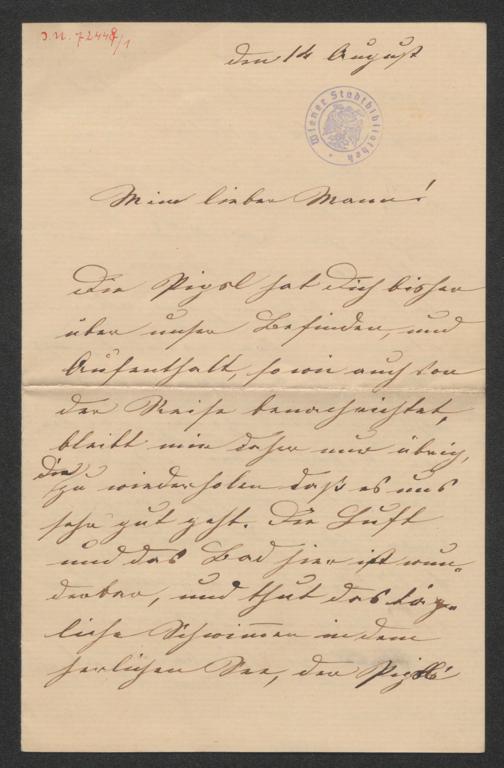 J.N. 72448/1
den 14 August
Wiener Stadtbibliothek
Mein lieber Mann!
Die Pigsl hat Dich bisher
über unser Befinden, und
Aufenthalt, sowie auch von
der Reise benachrichtet,
bleibt mir daher nur übrig,
Dir
zu wiederholen daß es uns
sehr gut geht. Die Luft
und das Bad hier ist wun„
derbar, und thut das täg„
liche Schwimmen in dem
herlichen See, der